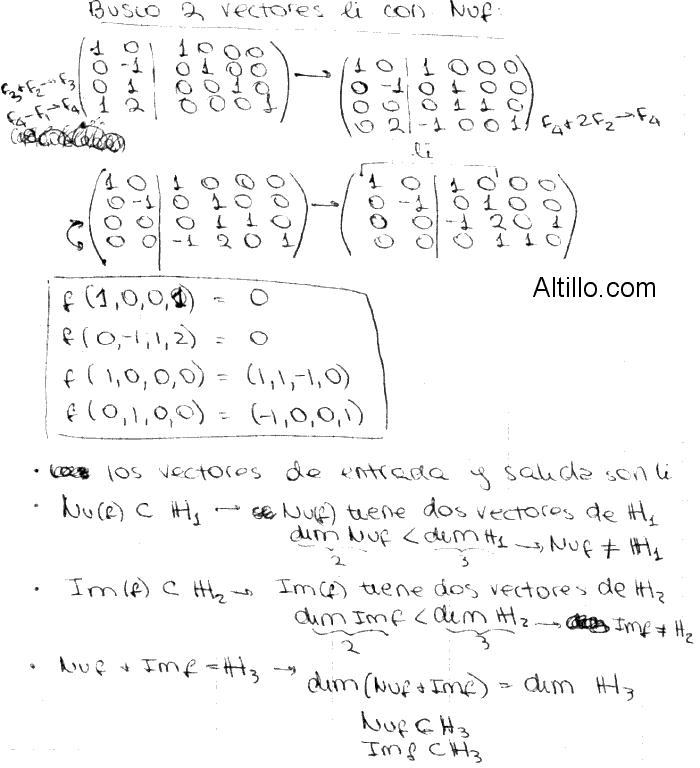 Busco 2 vectores li con Nuf:
1 0 | 1 0 0 0 → 1 0 | 1 0 0 0
0 -1 | 0 1 0 0 0 -1 | 0 1 0 0
F3+F2→F3 0 1 | 0 0 1 0 0 0 | 0 1 1 0
F4-F1→F4 1 2 | 0 0 0 1 0 2 | -1 0 0 1 F4+2F2→F4
li
1 0 | 1 0 0 0 → 1 0 | 1 0 0 0
0 -1 | 0 1 0 0 0 -1 | 0 1 0 0
0 0 | 0 1 1 0 0 0 | -1 2 0 1
0 0 | -1 2 0 1 0 0 | 0 1 1 0
f(1,0,0,1) = 0
Altillo.com
f(0,-1,1,2) = 0
f(1,0,0,0) = (1,1,-1,0)
f(0,1,0,0) = (-1,0,0,1)
· los vectores de entrada y salida son li
· Nu(f) ⊂ H1 → Nu(f) tiene dos vectores de H1
dim Nuf < dim H1 → Nuf ≠ H1
2 3
· Im(f) ⊂ H2 → Im(f) tiene dos vectores de H2
dim Imf < dim H2 → Imf ≠ H2
2 3
· Nuf + Imf = H3 → dim(Nuf+Imf) = dim H3
Nuf ⊂ H3
Imf ⊂ H3